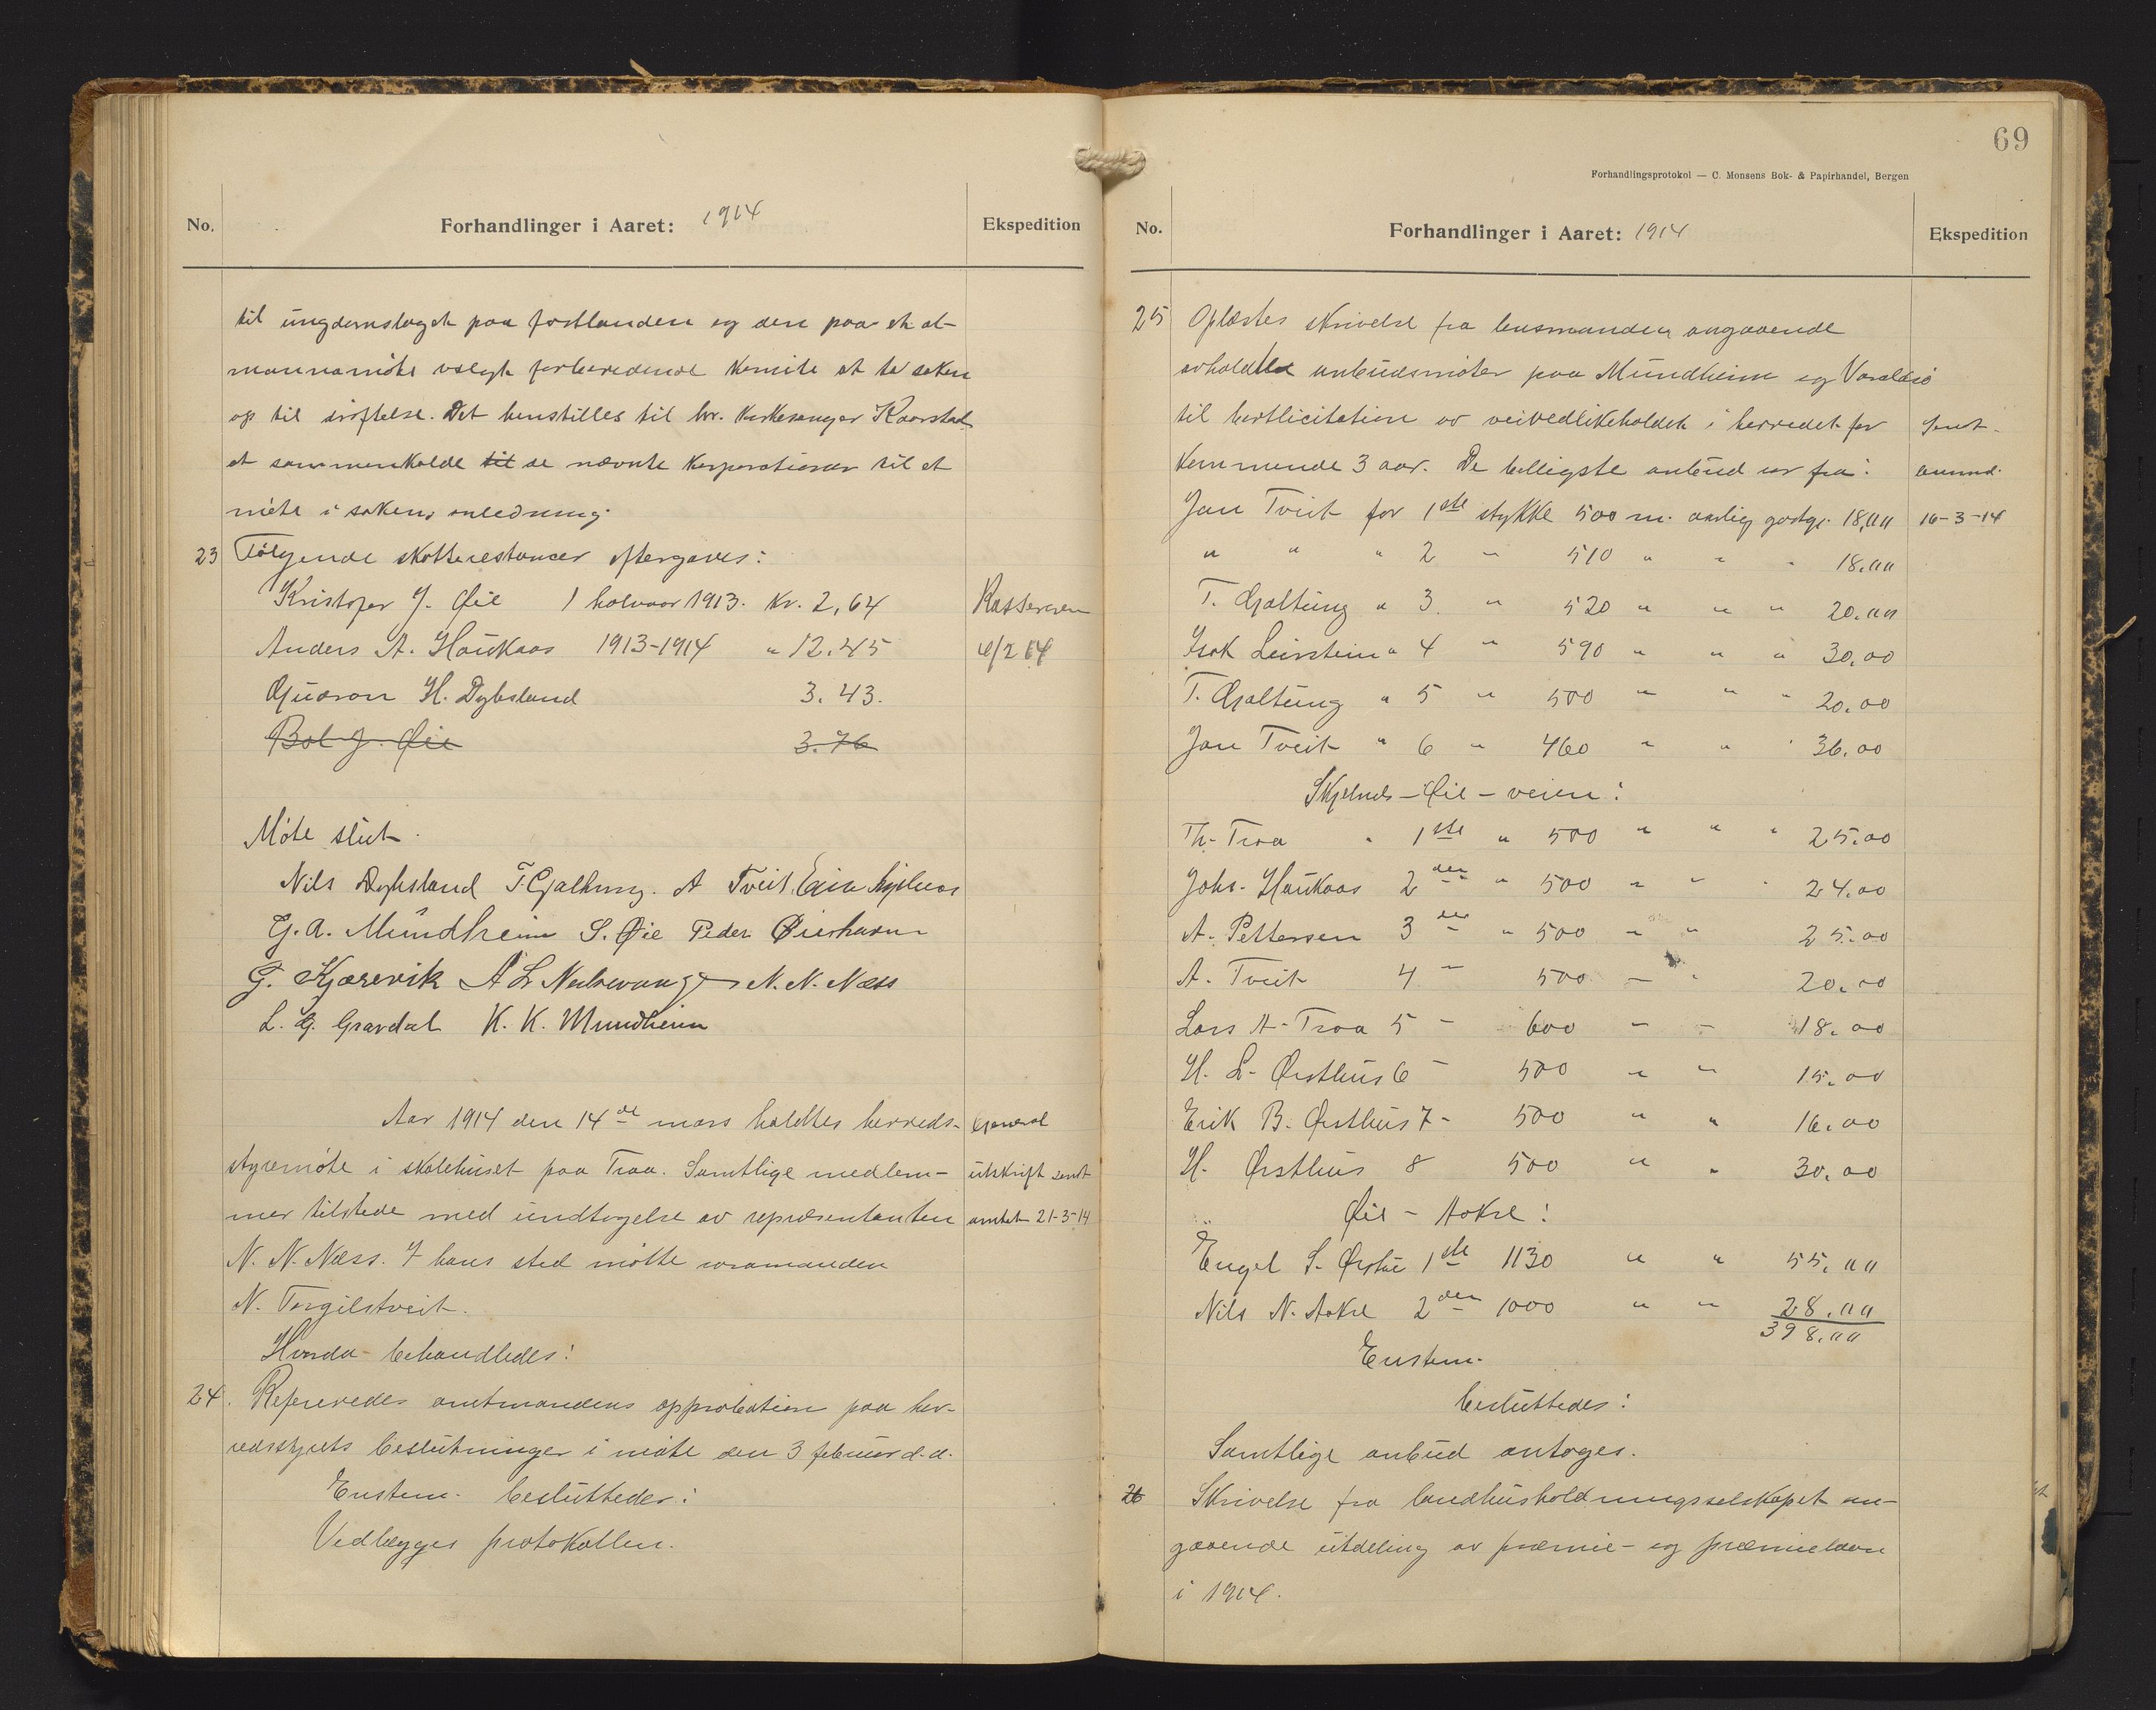 No. Forhandlinger i Aaret: 1914 Ekspedition
til ungdomslaget paa fastlandet og den paa et al-
mannamöte valgte forberedende komite at ta saken
op til dröftelse. Det henstilles til hr. kirkesanger Kaarstad
at sammenkalde til de nævnte korporationer til et
möte i sakens anledning.
23 Følgende skatterestancer eftergaves:
Kristofer J. Øie 1 halvaar 1913. kr. 2,64 Kassereren
Anders A. Haukaas 1913-1914 " 12.45 4/2 14
Gudron H. Dybsland 3.43.
Bol J. Øie 3.76
Möte slut.
Nils Dybsland T. Gjaltung. A Tveit.
G. A. Mundheim S. Øie Peder Øierhavn
G. Kjærevik N. N. Næss
L. G. Gravdal K. K. Mundheim
Aar 1914 den 14de mars holdtes herreds- General
styremöte i skolehuset paa Traa. Samtlige medlem- utskrift sendt
mer tilstede med undtagelse av repræsentanten amtet 21-3-14
N. N. Næss. I hans sted mötte varamanden
N. Torgilstveit.
Hvorda behandledes:
24. Refereredes amtmandens approbation paa her-
redsstyrets beslutninger i möte den 3 februar d.a.
Enstem. besluttedes:
Vedlægges protokollen.
69
Forhandlingsprotokol — C. Monsens Bok- & Papirhandel, Bergen
No. Forhandlinger i Aaret: 1914 Ekspedition
25 Oplæstes skrivelse fra lensmanden angaaende
avholdte anbudsmöter paa Mundheim og Varaldsö
til bortlicitation av veivedlikeholdet i herredet for Sendt
kommende 3 aar. De billigste anbud var fra:
Jon Tveit for 1ste stykke 500 m. aarlig godtgj. 18,00 16-3-14
" " " 2 " 510 " " " 18.00
T. Gjaltung " 3. " 520 " " " 20.00
Isak Leirstein " 4 " 590 " " " 30,00
T. Gjaltung " 5 " 500 " " " 20.00
Jon Tveit " 6 " 460 " " " 36.00
Skjelnes-Øie-veien:
Th. Traa " 1ste " 500 " " " 25.00
Johs. Haukaas 2den " 500 " " " 24.00
A. Pettersen 3die " 500 " " 25.00
A. Tveit 4 " 500 " " 20.00
Lars A. Traa 5 " 600 " " 18.00
H. L. Østhus 6 " 500 " " 15.00
Erik B. Østhus 7 " 500 " " 16.00
H. Østhus 8 500 " " 30.00
Øie - Aakre:
Engel S. 1ste 1130 " " 55.00
Nils N. Aakre 2den 1000 " " 28.00
398.00
Enstem.
besluttedes:
Samtlige anbud antoges.
26 Skrivelse fra landhusholdningsselskapet an-
gaaende utdeling av præmie- og præmielaan
i 1914.